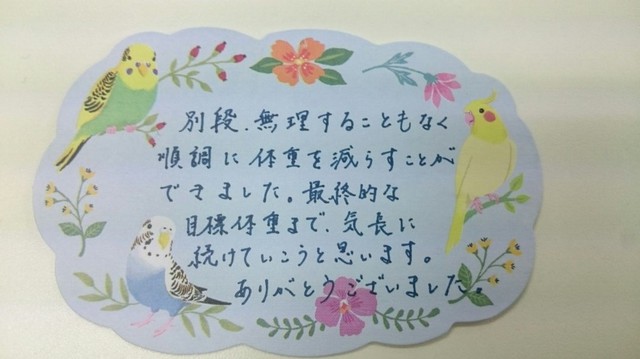 別段、無理することもなく
順調に体重を減らすことが
できました。最終的な
目標体重まで、気長に
続けていこうと思います。
ありがとうございました。